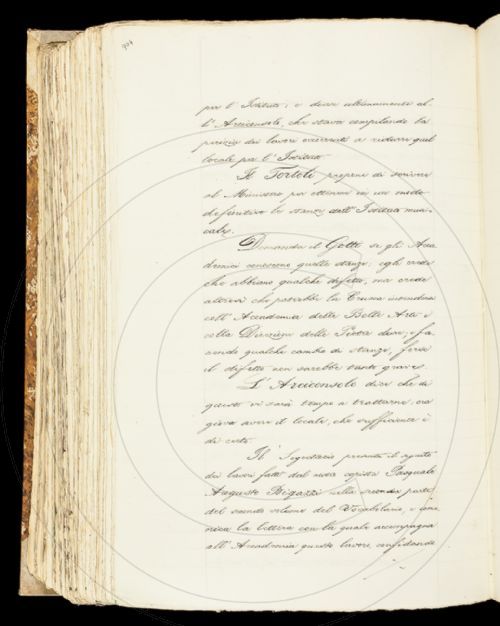 704
per l'Istituto; e deve ultimamente al
l'Arciconsolo, che stava compilando la
perizia dei lavori occorrenti a ridurre quel
locale per l'Istituto.
Il Tortoli propone di scrivere
al Ministero per ottenere in un modo
definitivo le stanze dell'Istituto mu
cale.
Domanda il Gotti se gli Acca
demici conoscono quelle stanze; egli crede
che abbiano qualche difetto, ma crede
altresì che potrebbe la Crusca intendersi
coll'Accademia delle Belle Arti e
colla Direzione delle Pietre dure, e fa
cendo qualche cambio di stanze, forse
il difetto non sarebbe tanto grave.
L'Arciconsolo dice che di
questo vi sarà tempo a trattarne, ora
giova avere il locale, che sufficiente è
di certo.
Il Segretario presenta
dei lavori fatti dal copista Pasquale
Augusto Bigazzi alla parte
del secondo volume del Vocabolario, e
la lettera con la quale accompagna
all'Accademia questo lavoro, confidando